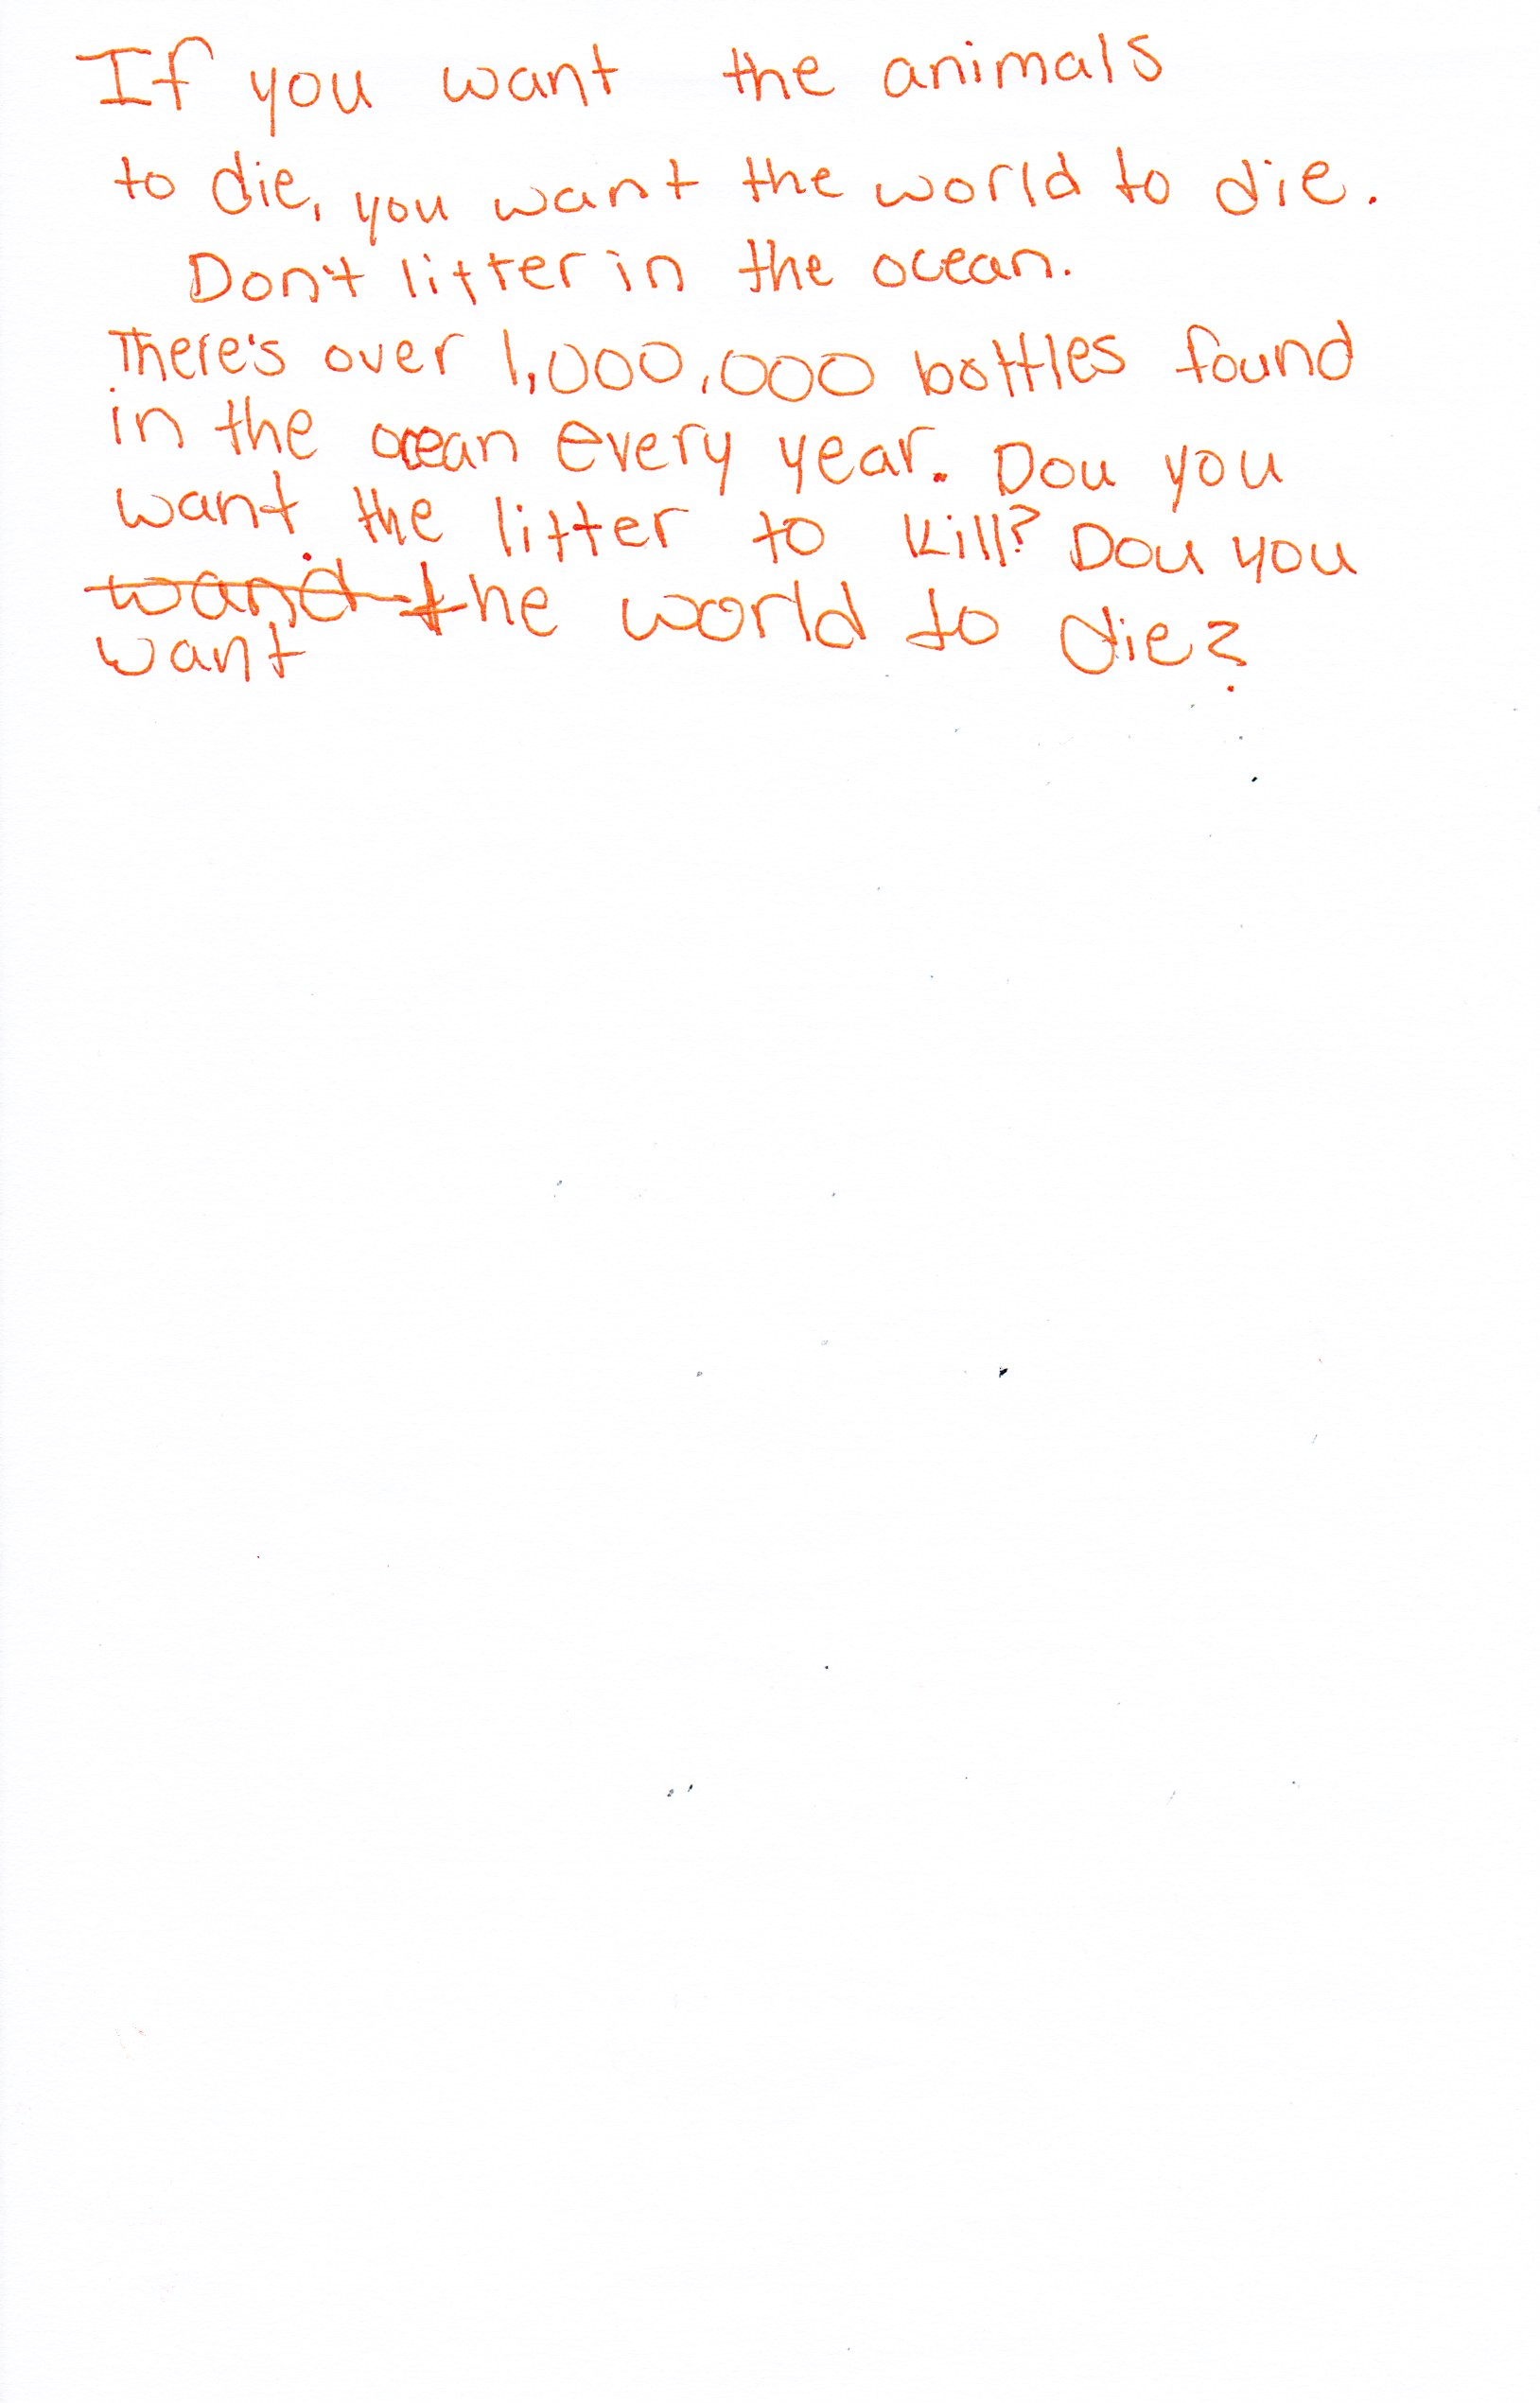 If you want the animals
to die, you want the world to die.
Don't litter in the ocean.
There's over 1,000,000 bottles found
in the ocean every year. Dou you
want the litter to kill? Dou you
wand the world to die?
want